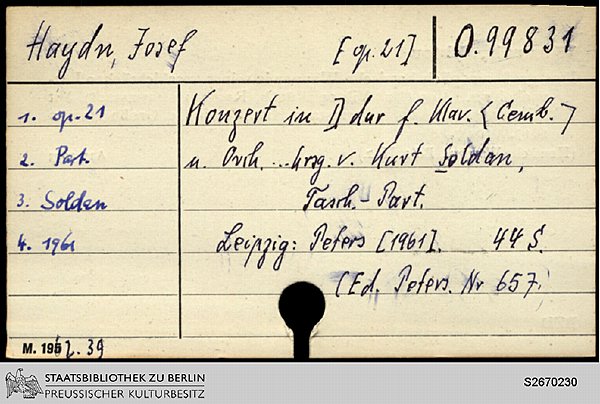 Haydn, Josef [op. 21] O. 99831
1. op. 21
2. Part.
3. Soldan
4. 1961
Konzert in D dur f. Klav. <Cemb.>
u. Orch. ... hrsg. v. Kurt Soldan,
Tasch.-Part.
Leipzig: Peters [1961]. 44 S.
(Ed. Peters. Nr 657.
M. 1962. 39
STAATSBIBLIOTHEK ZU BERLIN
PREUSSISCHER KULTURBESITZ
S2670230